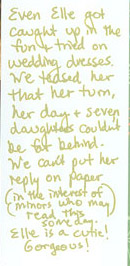 Even Elle got
caught up in the
fun & tried on
wedding dresses.
We teased her
that her turn,
her day & seven
daughters couldn't
be far behind.
We can't put her
reply on paper
(in the interest of
minors who may
read this
some day.)
Elle is a cutie!
Gorgeous!